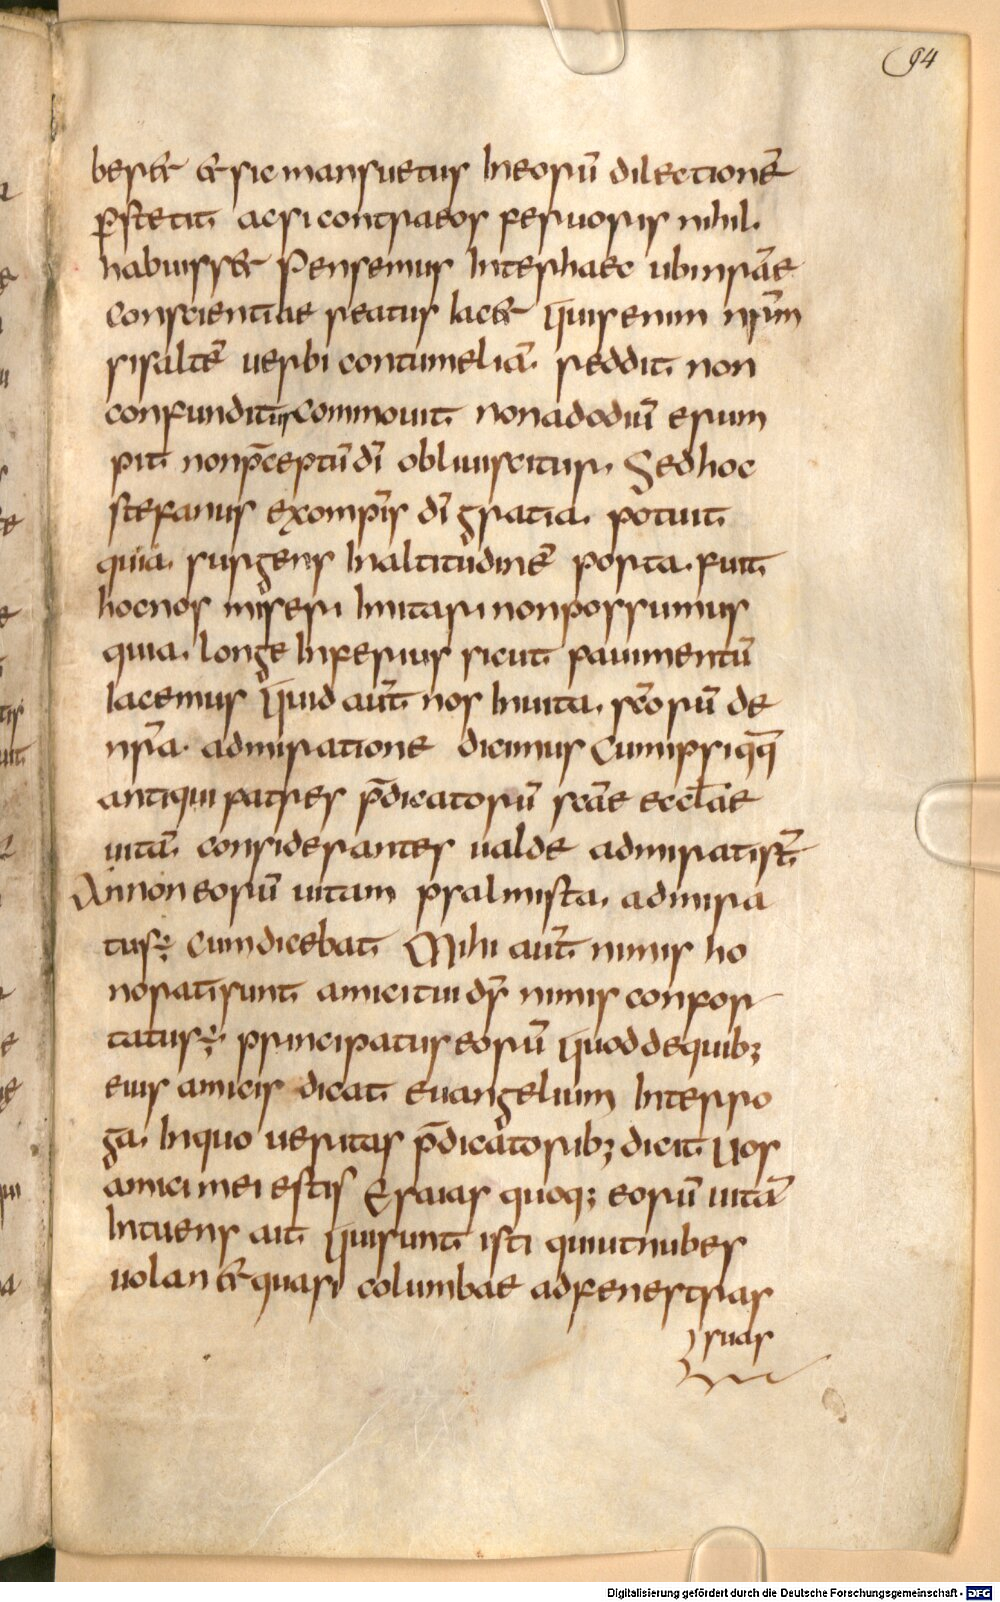 94
beret et sic mansuetus In eorū dilectionē
p̄stetit ac si contra eos feruoris nihil.
habuisset Pensemus Inter haec ubi nr̄ae
conscientiae reatus Iacet Quis enim nr̄m
si saltē uerbi contumeliā reddit non
confunditur commouit non ad odiū erum
pit non p̄ceptū dī obliuiscitur. Sed hoc
stefanus ex omp̄is dī gratia potuit
quia surgens In altitudinē posita fuit
hoc nos miseri Imitari non possumus
quia longe Inferius sicut pauimentū
Iacemus Quid aut̄ nos In uita sc̄orū de
nr̄a admiratione dicimus Cum ipsi qq̄
antiqui patres p̄dicatorū sc̄ae eccl̄ae
uitā considerantes ualde admirati st̄
An non eorū uitam psalmista admira
tus÷ Cum dicebat Mihi aut̄ nimis ho
norati sunt amici tui ds̄ nimis confor
tatus÷ principatus eorū Quod de quib;
eius amicis dicat euangelium Interro
ga In quo ueritas p̄dicatorib; dicit Vos
amici mei estis Esaias quoq; eorū uitā
Intuens ait Qui sunt isti qui ut nubes
uolant et quasi columbae ad fenestras
suas
Digitalisierung gefördert durch die Deutsche Forschungsgemeinschaft - DFG